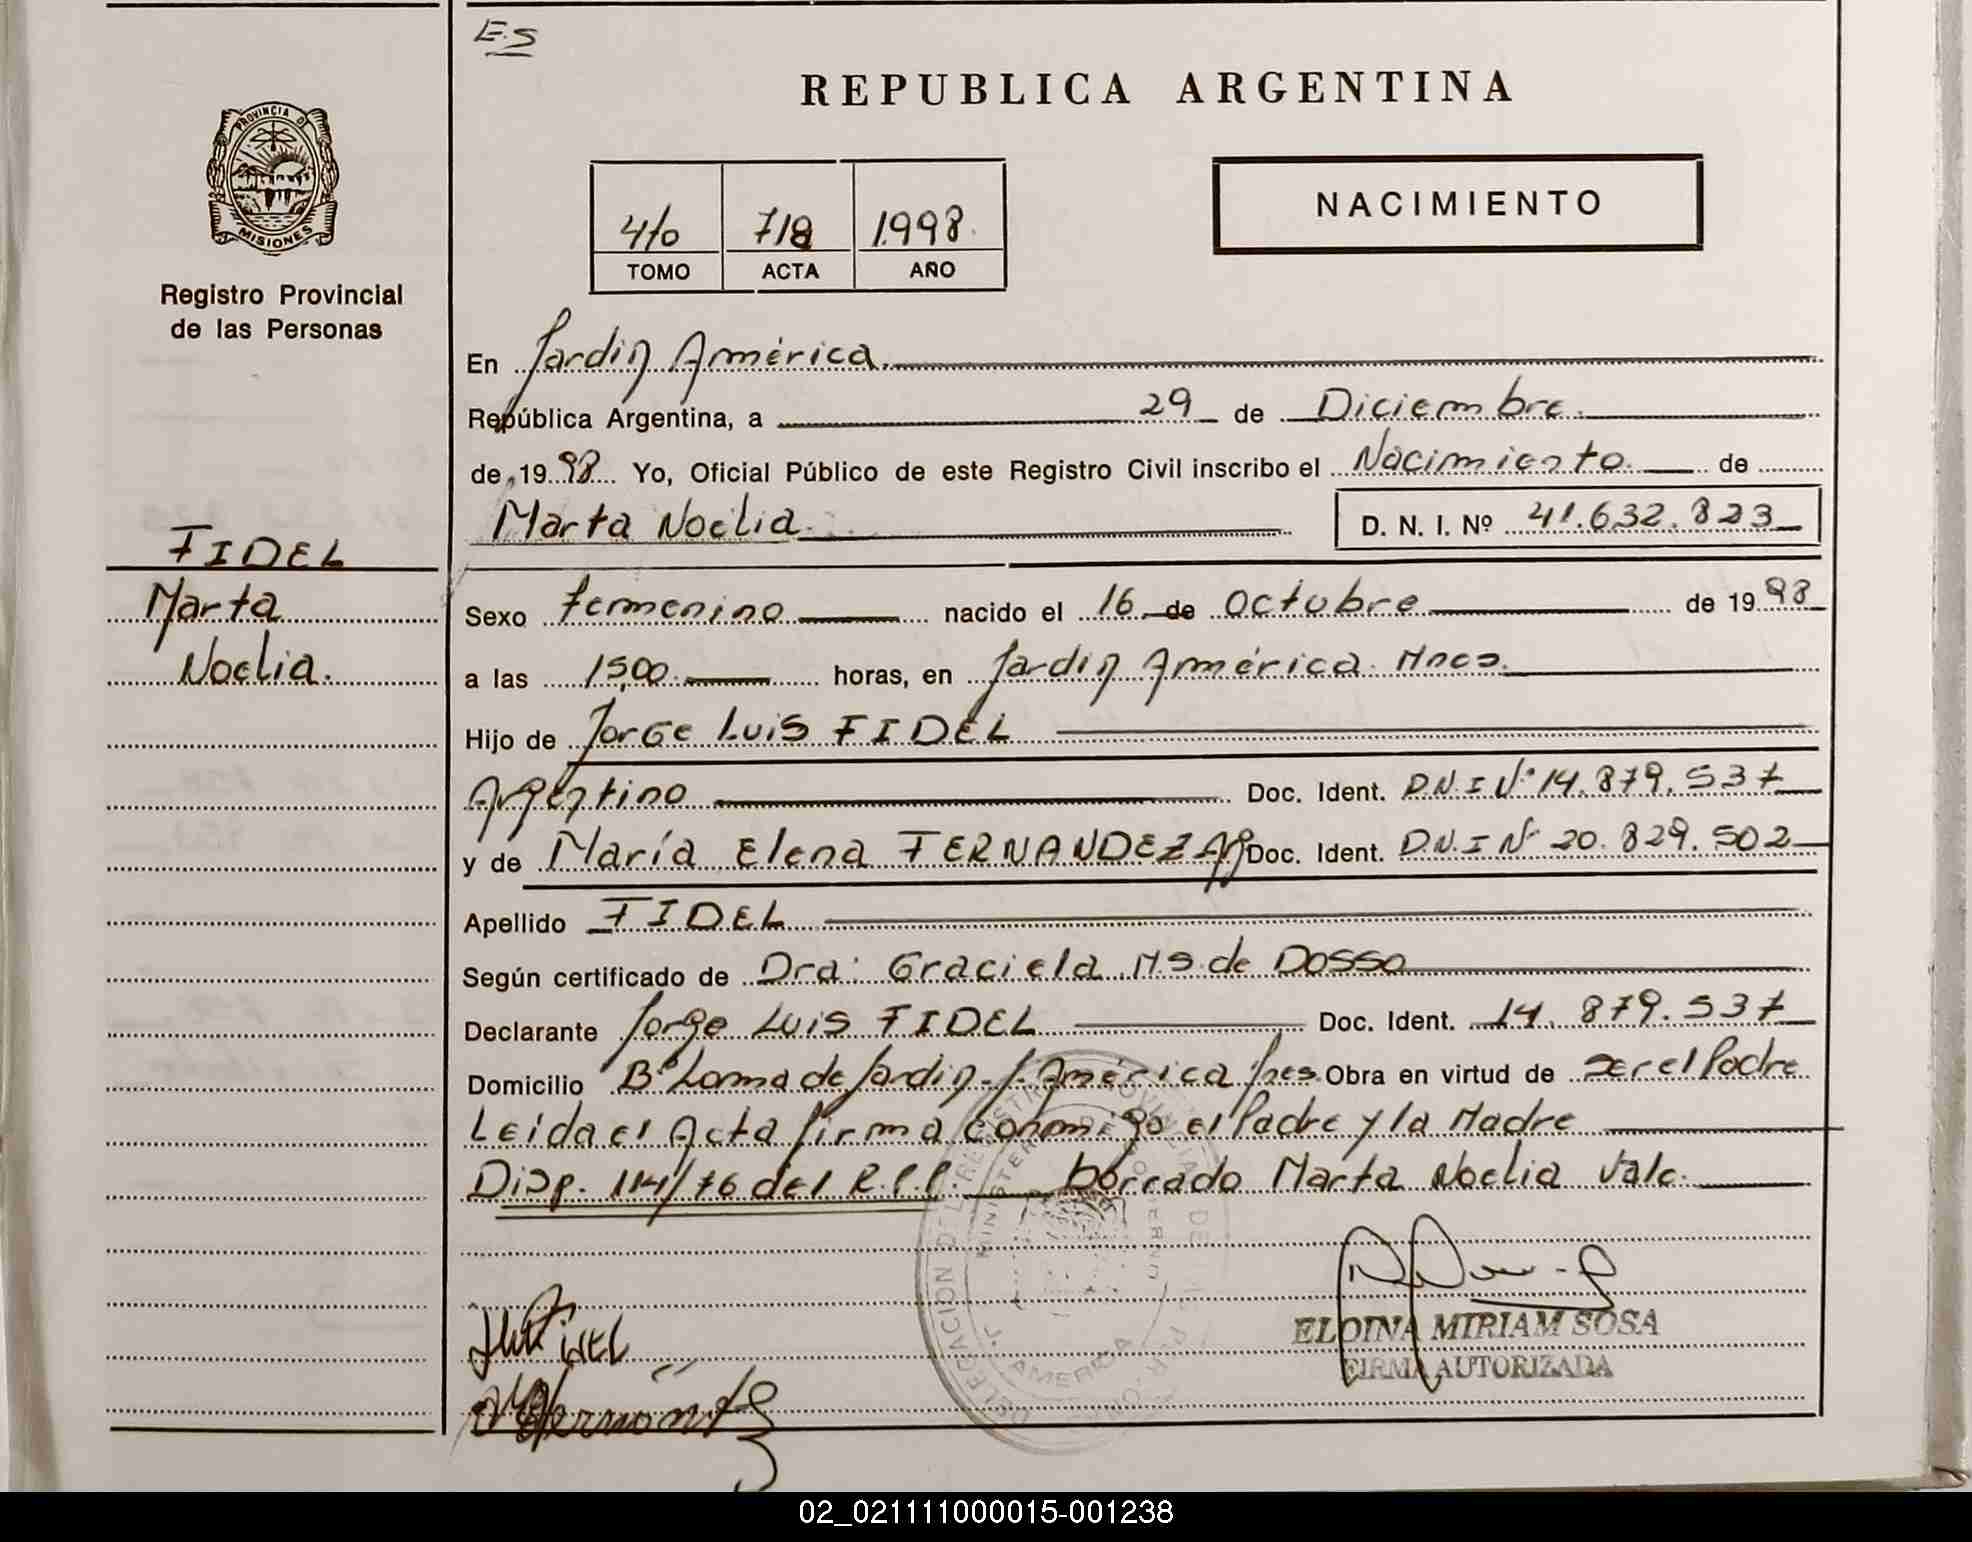 E.S
REPUBLICA ARGENTINA
PROVINCIA DE
MISIONES
Registro Provincial
de las Personas
4/0 718 1.998.
TOMO ACTA AÑO
NACIMIENTO
En Jardin América.
República Argentina, a 29 de Diciembre.
de 19 98 Yo, Oficial Público de este Registro Civil inscribo el Nacimiento de
Marta Noelia. D. N. I. Nº 41.632.823
FIDEL
Marta
Noelia.
Sexo femenino nacido el 16 de octubre de 19 98
a las 15,00 horas, en Jardin América. Mnes.
Hijo de Jorge Luis FIDEL
Argentino Doc. Ident. D.N.I Nº 14.879.537
y de María Elena FERNANDEZ Ag Doc. Ident. D.N.I Nº 20.829.502
Apellido FIDEL
Según certificado de Dra: Graciela M S de Dosso
Declarante Jorge Luis FIDEL Doc. Ident. 14.879.537
Domicilio Bº Loma de Jardin - J. América Obra en virtud de ser el Padre
Leida el Acta firma conmigo el Padre y la Madre
Disp. 114/76 del R.P.P. borrado Marta Noelia Vale.
DELEGACION DEL REGISTRO PROVINCIAL DE LAS PERSONAS
MINISTERIO DE GOBIERNO
J. AMERICA
ELOINA MIRIAM SOSA
FIRMA AUTORIZADA
02_021111000015-001238